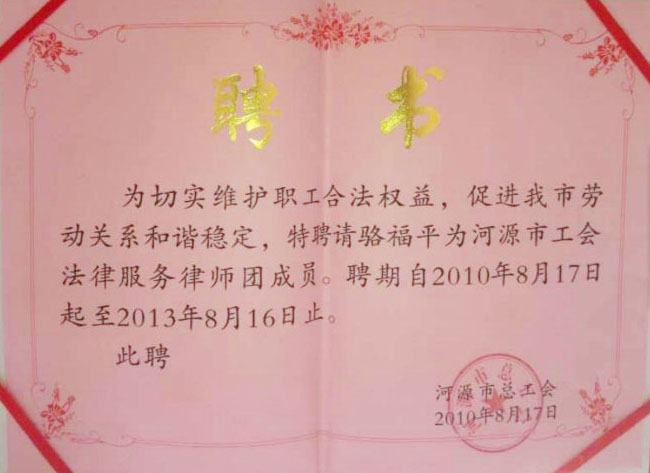 聘书
为切实维护职工合法权益，促进我市劳
动关系和谐稳定，特聘请骆福平为河源市工会
法律服务律师团成员。聘期自2010年8月17日
起至2013年8月16日止。
此聘
河源市总工会
2010年8月17日